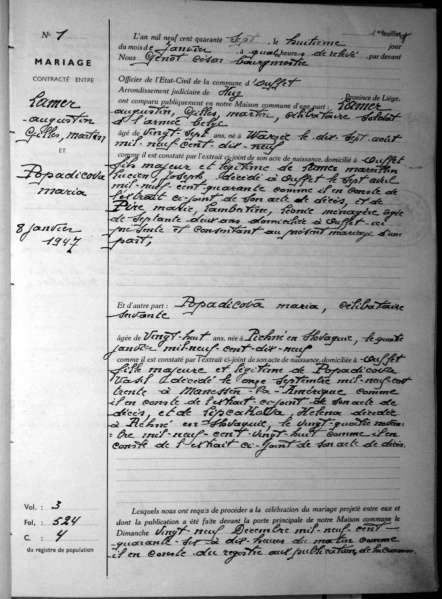 N° 1
MARIAGE
CONTRACTÉ ENTRE
Lamer
augustin
Gilles, martin
ET
Popadicova
maria
8 janvier
1947
Vol. : 3
Fol. : 524
C. : 4
du registre de population
L'an mil neuf cent quarante sept, le huitième jour
du mois de janvier, à quatre heures de relevé par devant
Nous Genot César bourgmestre
Officier de l'Etat-Civil de la commune d'Ouffet
Arrondissement judiciaire de Huy Province de Liège,
ont comparu publiquement en notre Maison commune d'une part : Lamer
augustin, Gilles, martin, célibataire soldat
à l'armée belge
âgé de Vingt-sept ans, né à Warzée le dix sept août
mil-neuf-cent-dix-neuf
comme il est constaté par l'extrait ci-joint de son acte de naissance, domicilié à Ouffet
fils majeur et légitime de Lamer
Joseph, décédé à Ouffet le sept avril
mil-neuf-cent-quarante comme il en conste de
l'extrait ci-joint de son acte de décès, et de
marie, Lambertine, Léonie ménagère âgée
de septante deux ans domiciliée à Ouffet ici
présente et consentant au présent mariage d'une
part;
Et d'autre part : Popadicova maria, célibataire
servante
âgée de Vingt-huit ans, née à Pichné en Slovaquie, le quatre
janvier mil-neuf-cent-dix-neuf
comme il est constaté par l'extrait ci-joint de son acte de naissance, domiciliée à Ouffet
fille majeure et légitime de Popadicova
Vasil décédé le onze septembre mil-neuf-cent
trente à en Amérique comme
il en conste de l'extrait ci-joint de son acte de
décès, et de Héléna décédée
à Pichné en Slovaquie, le vingt-quatre novem-
bre mil-neuf-cent-vingt-huit comme il en
conste de l'extrait ci-joint de son acte de décès.
Lesquels nous ont requis de procéder à la célébration du mariage projeté entre eux et
dont la publication a été faite devant la porte principale de notre Maison commune le
Dimanche vingt-neuf Décembre mil-neuf-cent-
quarante-six à dix heures du matin comme
il en conste du registre aux publications de la commune.